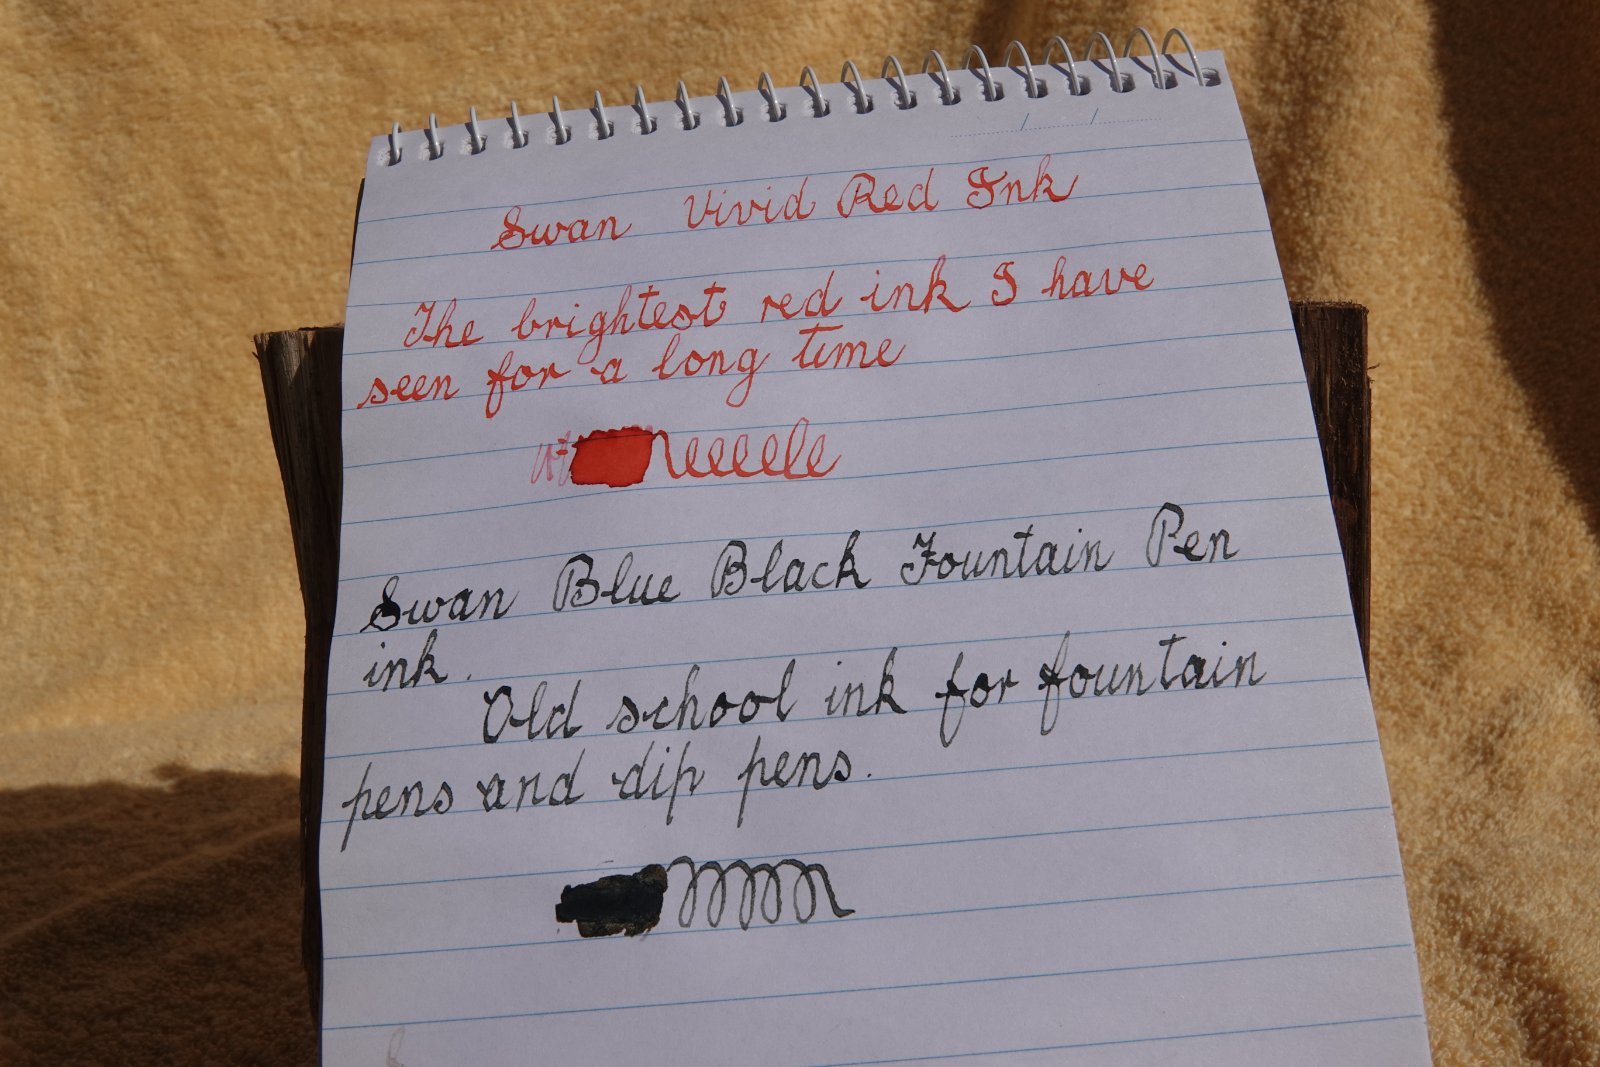 Swan Vivid Red Ink
The brightest red ink I have
seen for a long time
Swan Blue Black Fountain Pen
ink.
Old school ink for fountain
pens and dip pens.